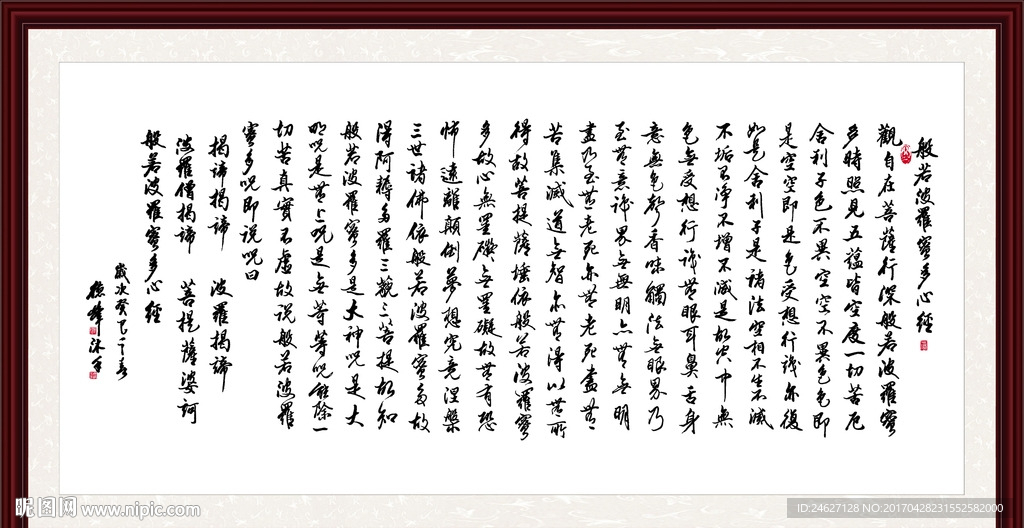 般若波羅蜜多心經
觀自在菩薩行深般若波羅蜜
多時照見五蘊皆空度一切苦厄
舍利子色不異空空不異色色即
是空空即是色受想行識亦復
如是舍利子是諸法空相不生不滅
不垢不淨不增不減是故空中無
色無受想行識無眼耳鼻舌身
意無色聲香味觸法無眼界乃
至無意識界無無明亦無無明
盡乃至無老死亦無老死盡無
苦集滅道無智亦無得以無所
得故菩提薩埵依般若波羅蜜
多故心無罣礙無罣礙故無有恐
怖遠離顛倒夢想究竟涅槃
三世諸佛依般若波羅蜜多故
得阿耨多羅三藐三菩提故知
般若波羅蜜多是大神呪是大
明呪是無上呪是無等等呪能除一
切苦真實不虛故说般若波羅
蜜多呪即说呪曰
揭諦揭諦 波羅揭諦
波羅僧揭諦 菩提薩婆訶
般若波羅蜜多心經
歲次癸巳
昵图网 www.nipic.com
ID:24627128 NO:20170428231552582000